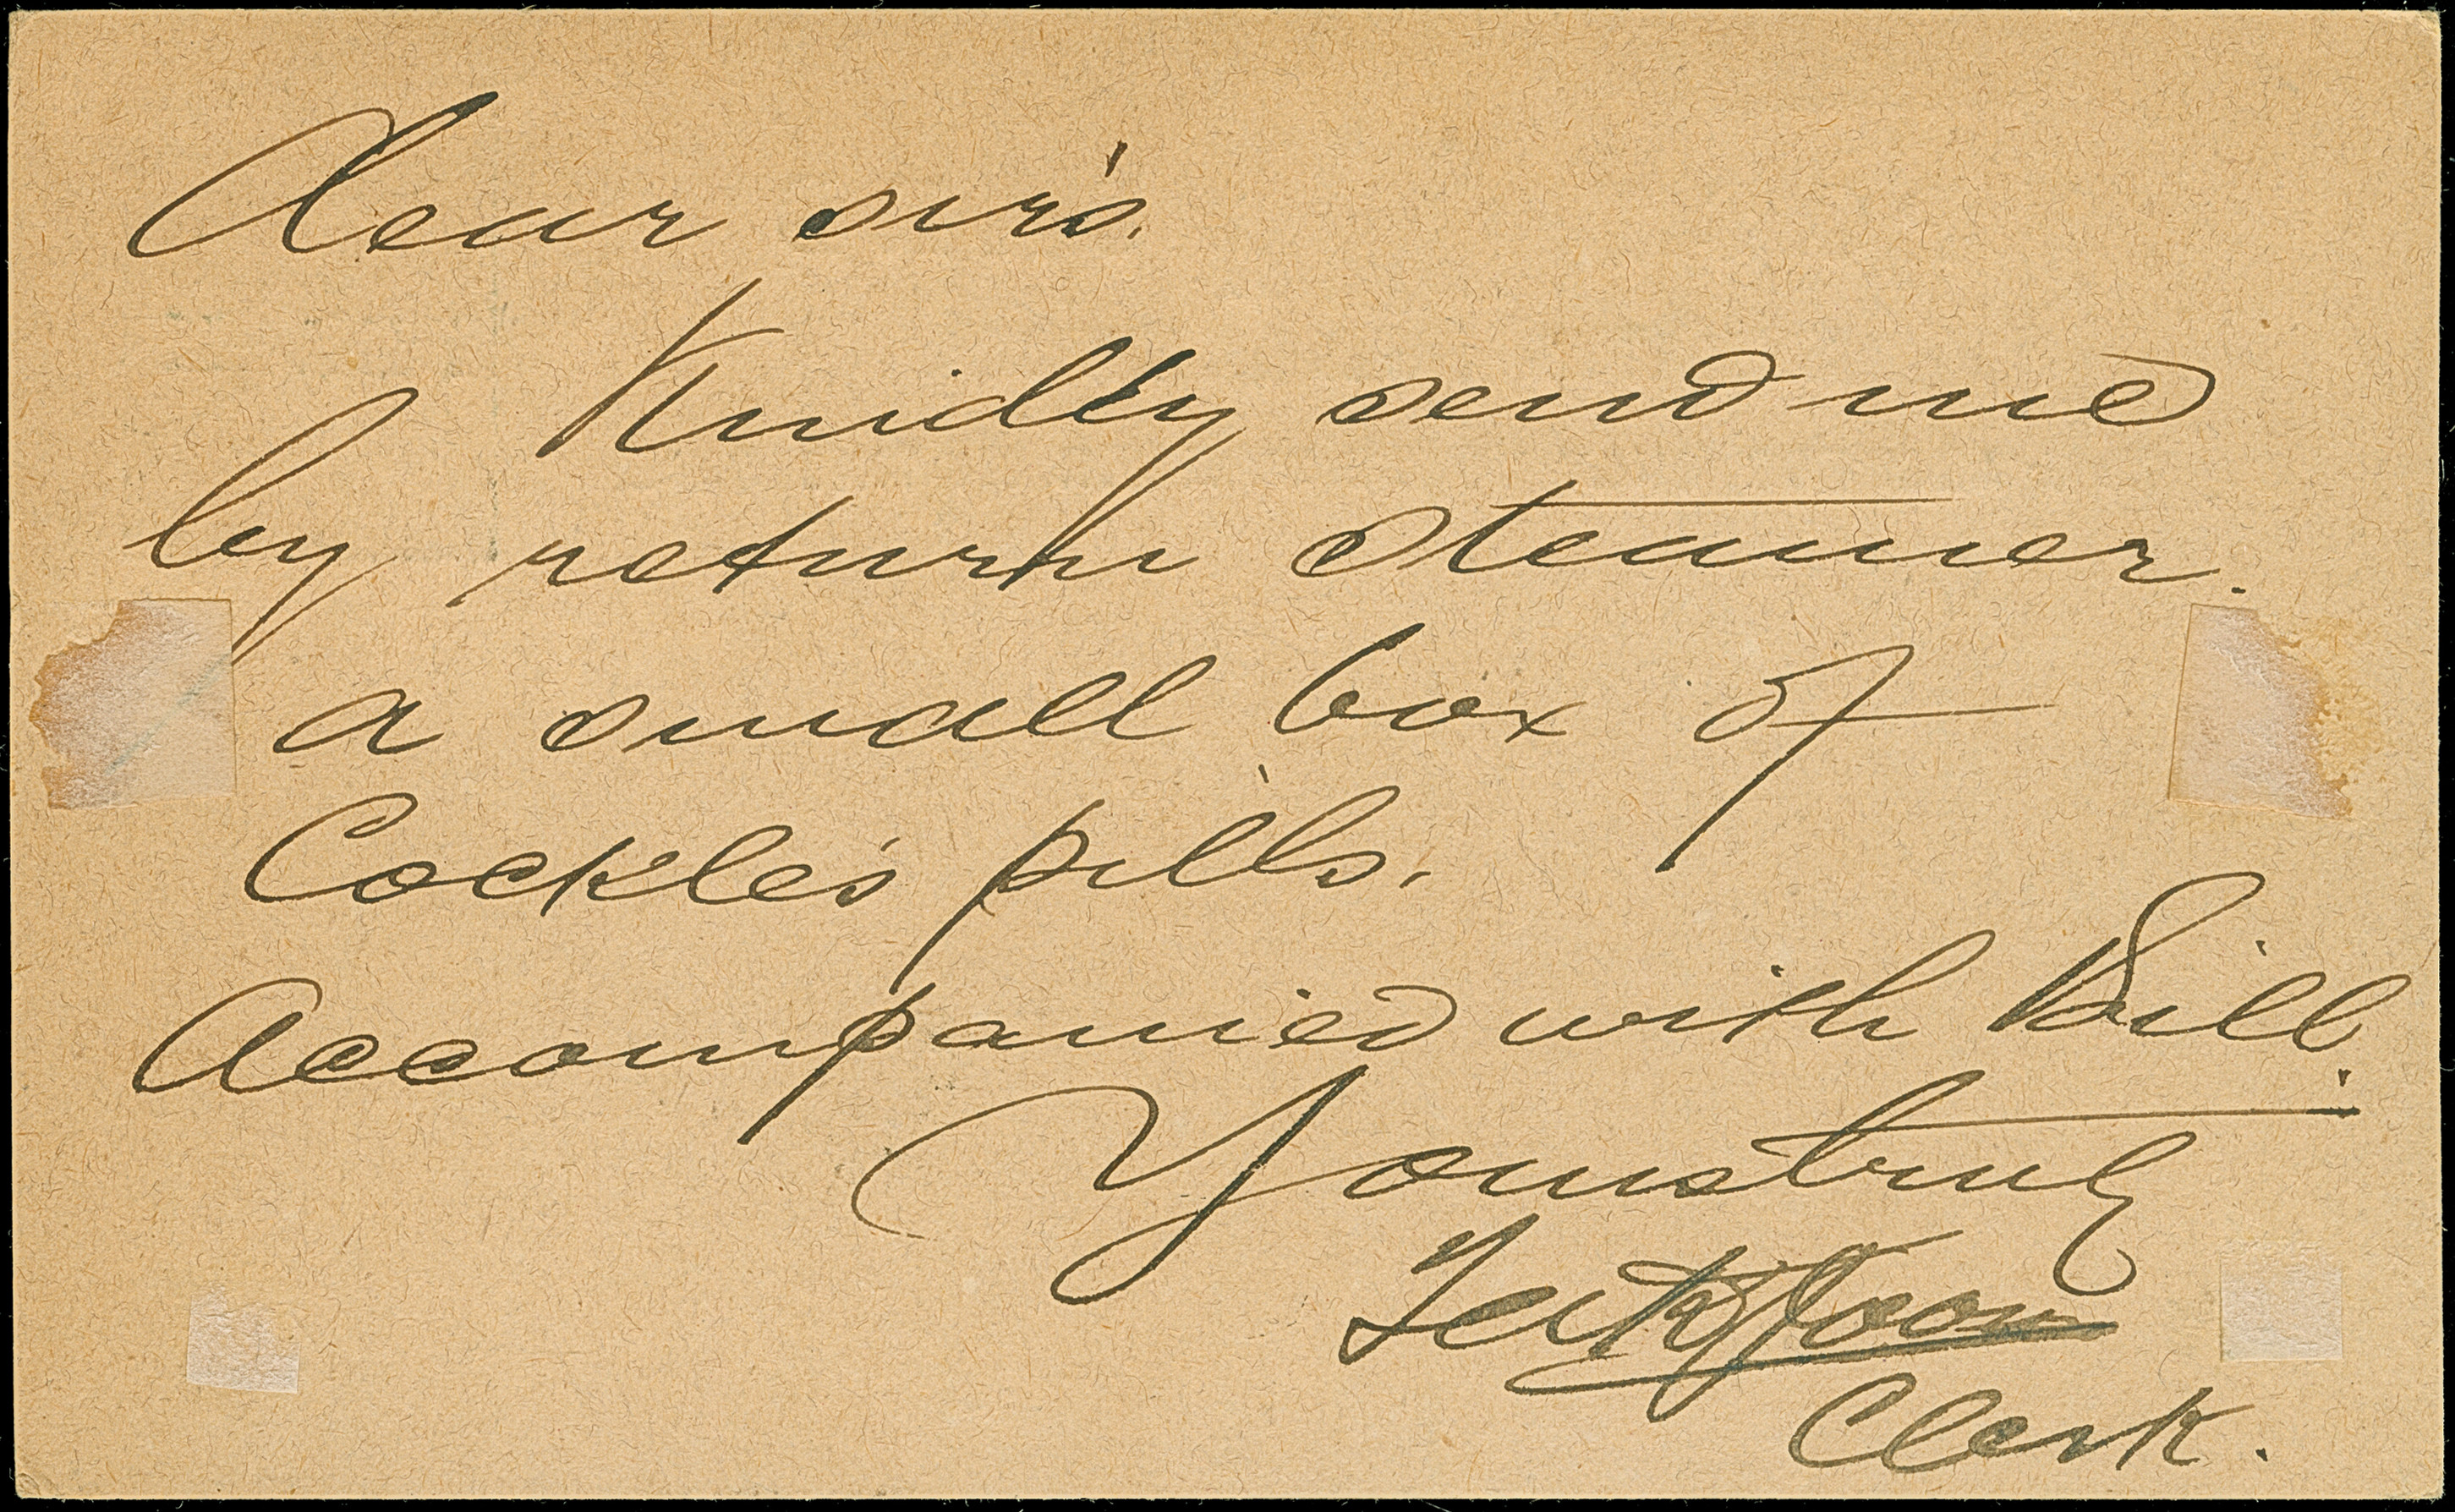 Dear sir's.
Kindly send me
by return steamer.
a small box of
Cockle's pills.
Accompanied with Bill.
Yours truly
Clerk.